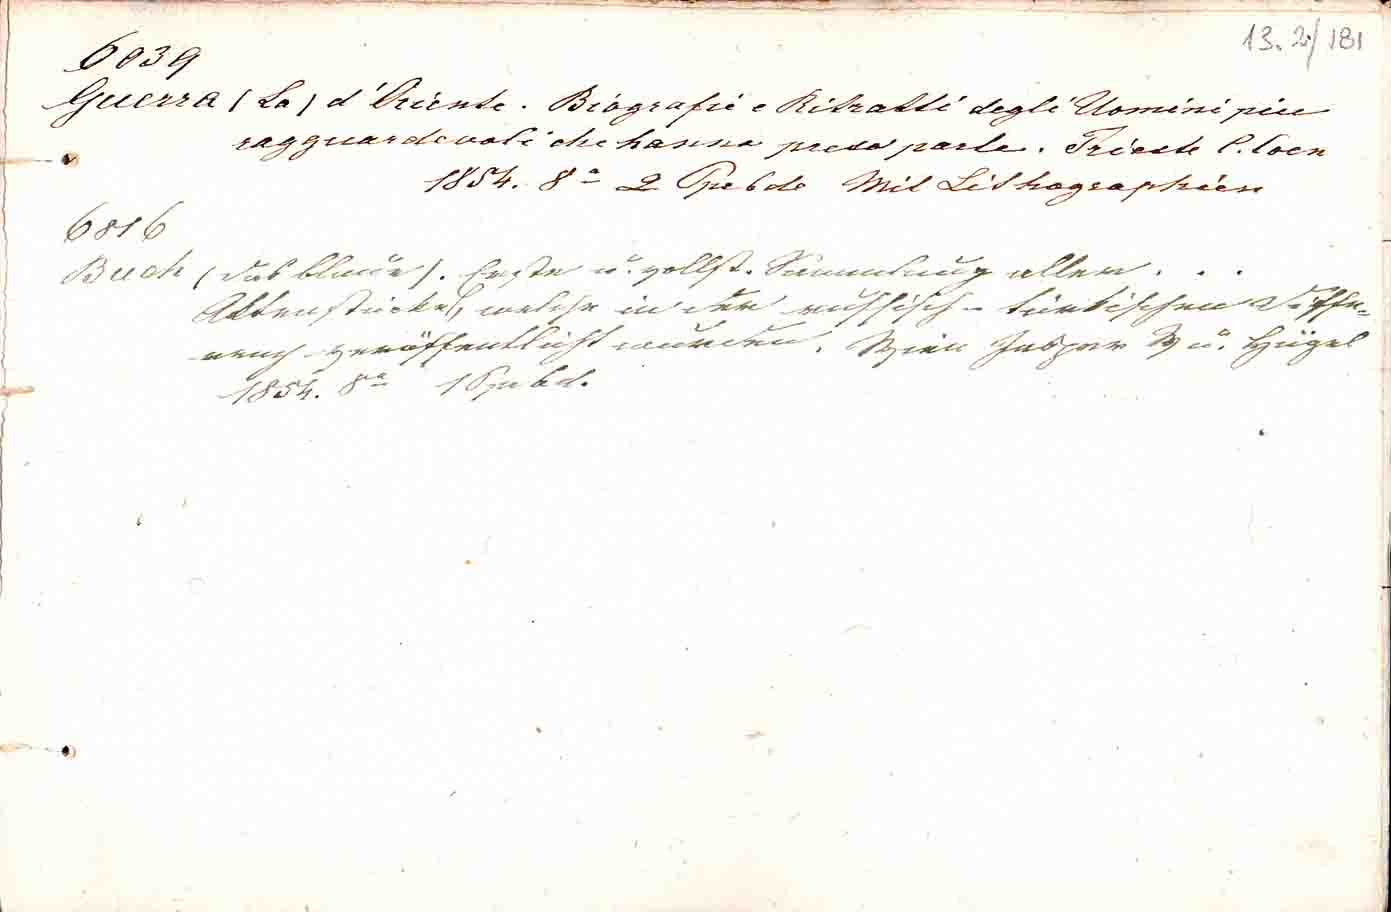 13. 2/181
6039
Guerra (La) d'Oriente. Biografie e Ritratti degli Uomini piu
ragguardevoli che hanno preso parte. Trieste C. Coen
1854. 8° 2 Ppebde Mit Lithographien
6816
Buch (das blaue). Erste u. vollst. Sammlung aller . . .
Aktenstücke, welche in der russisch-türkischen Diffe=
renz veröffentlicht wurden. Wien Jasper W u. Hügel
1854. 8° 1 Ppebd.